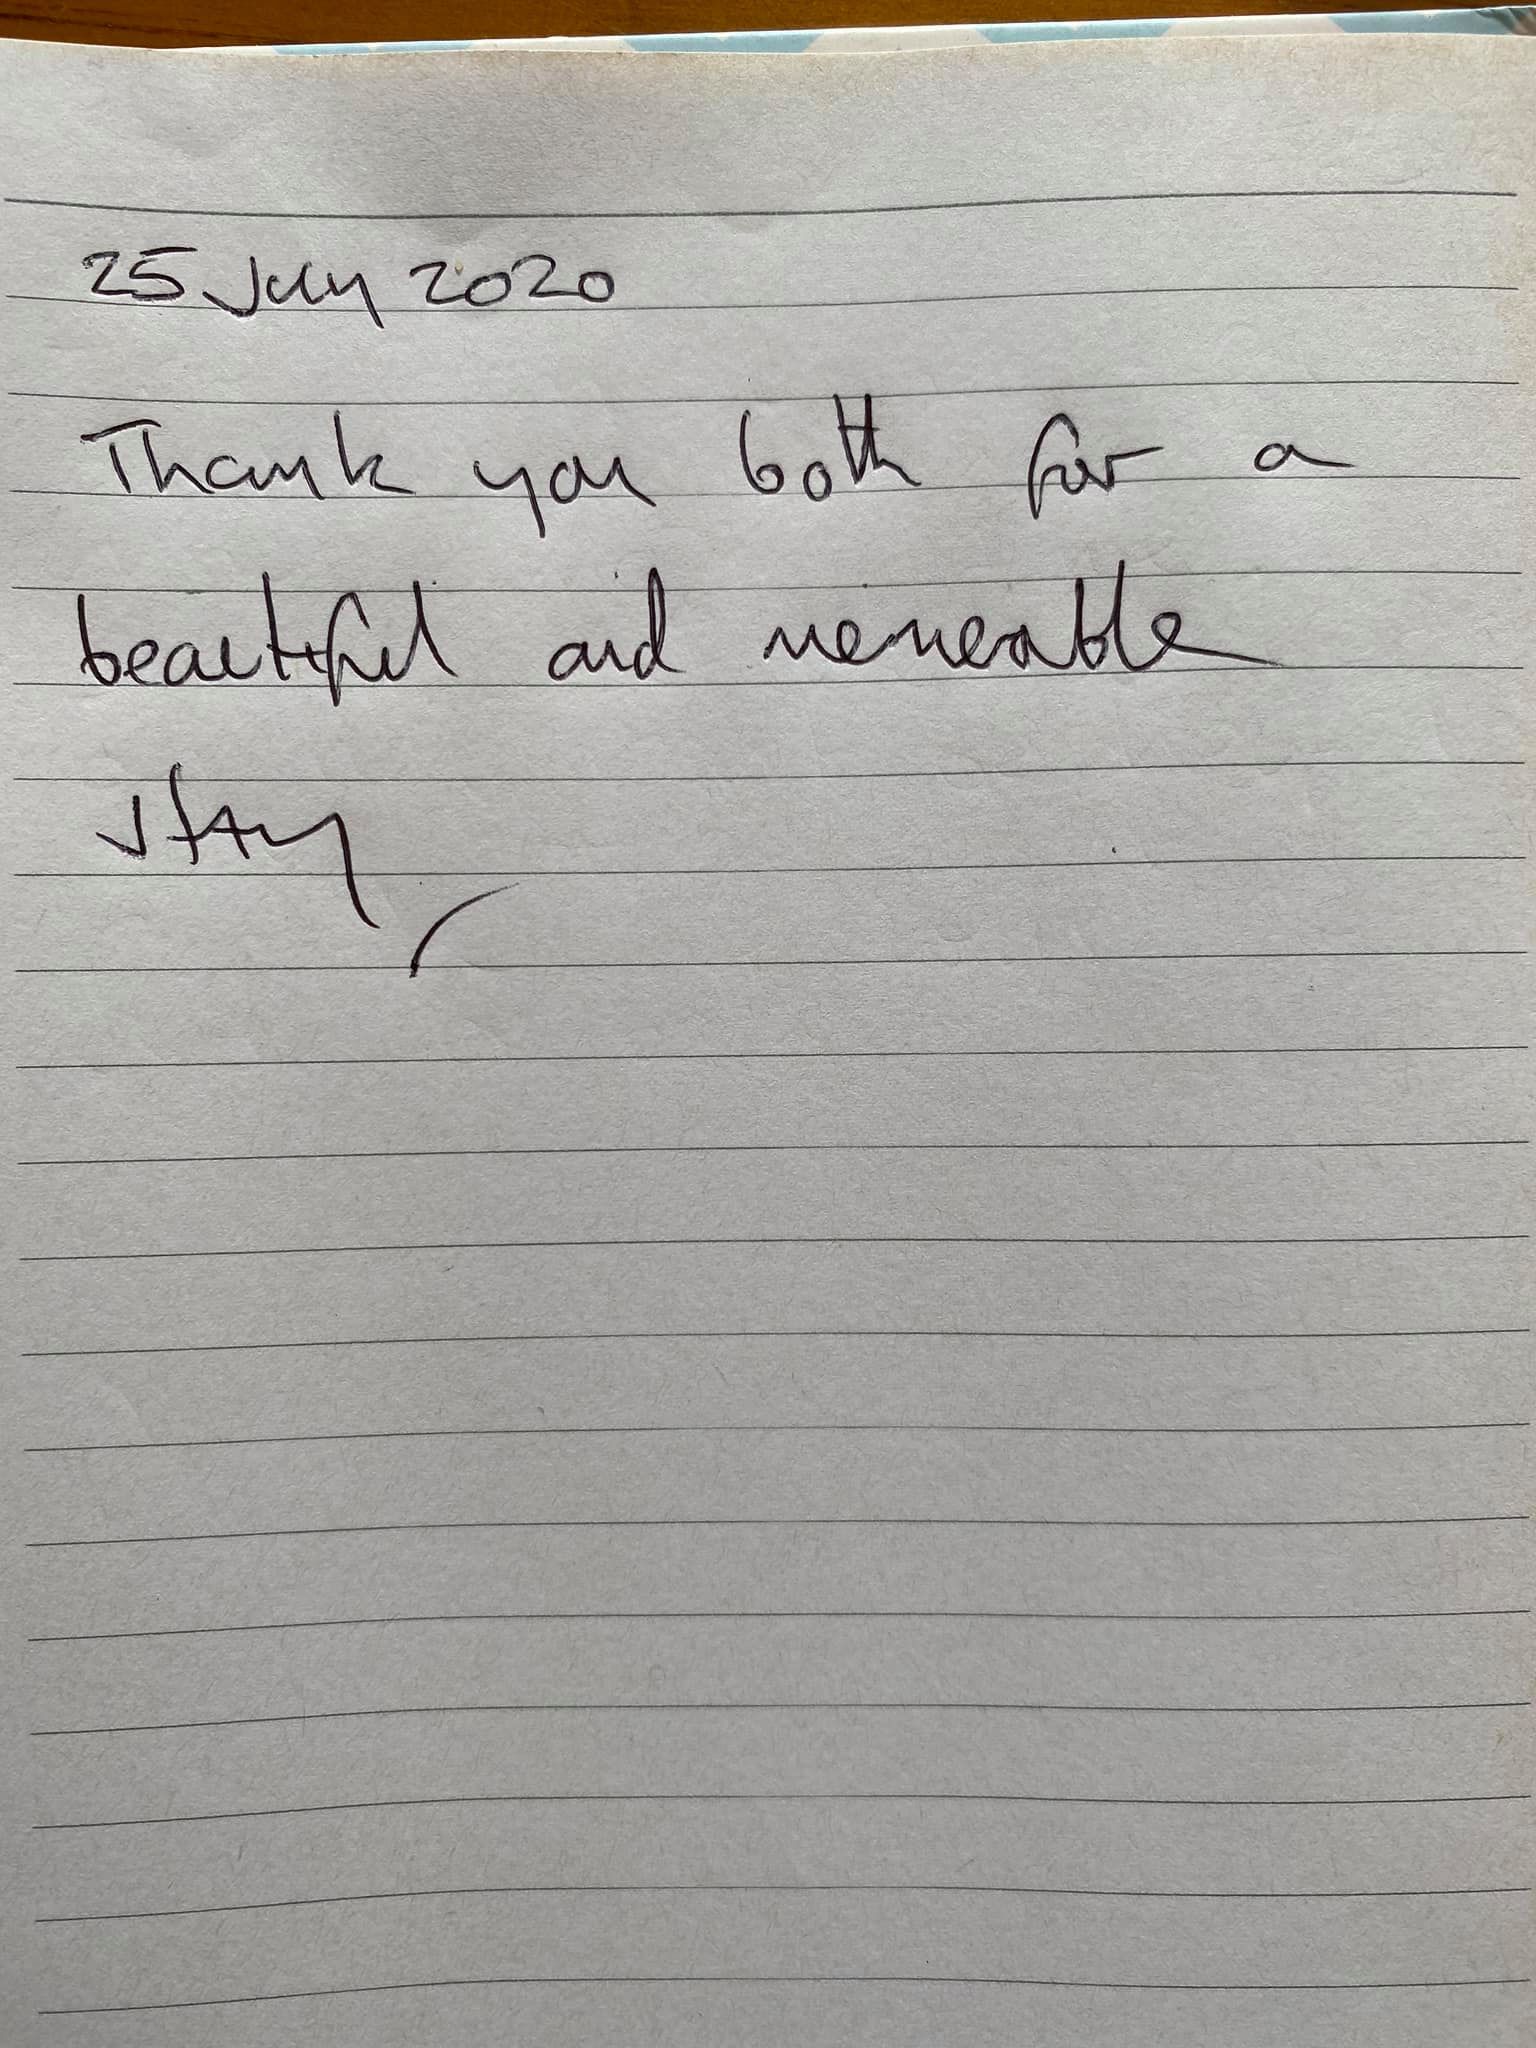 25 July 2020
Thank you both for a
beautiful and memorable
stay